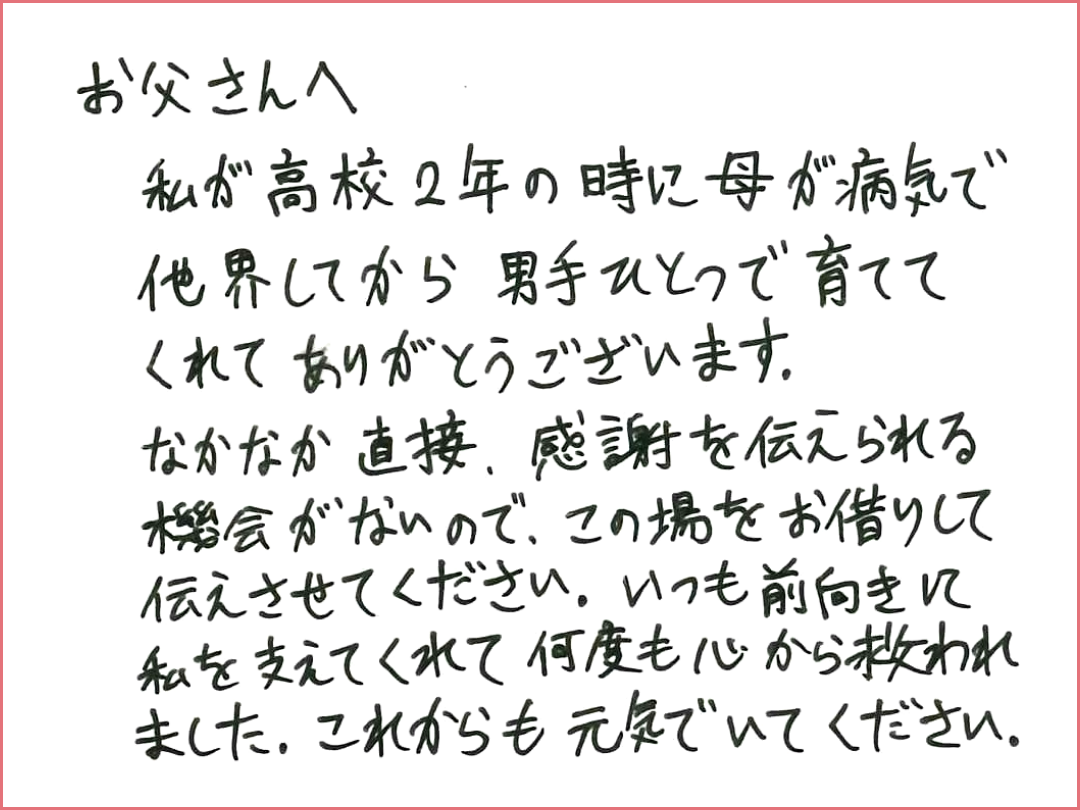 お父さんへ
私が高校2年の時に母が病気で
他界してから 男手ひとつで育てて
くれて ありがとうございます.
なかなか 直接、感謝を伝えられる
機会がないので、この場をお借りして
伝えさせてください. いつも前向きに
私を支えてくれて 何度も心から救われ
ました. これからも 元気でいてください.